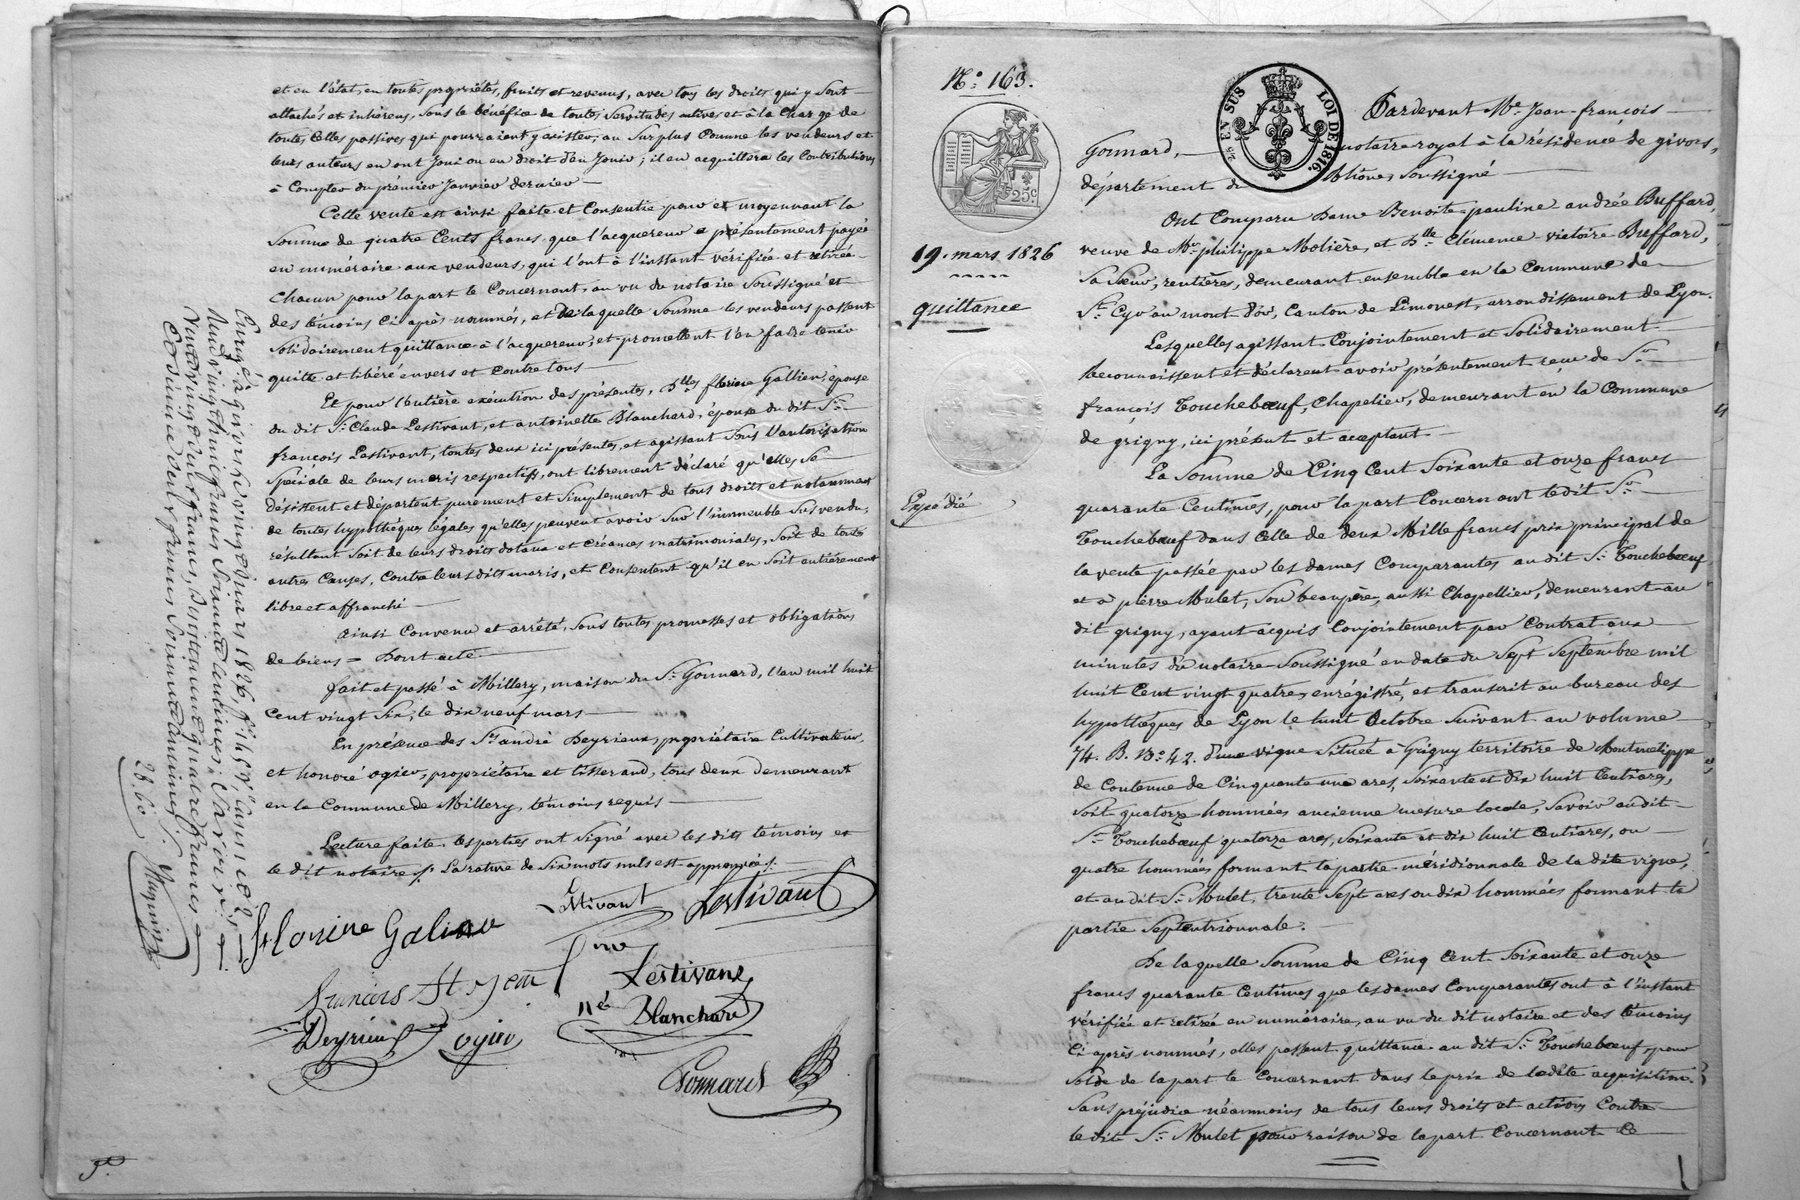 et en l'état, en toutes propriétés, fruits et revenus, avec tous les droits qui y sont
attachés et inhérens, sous le bénéfice de toutes servitudes actives et à la charge de
toutes celles passives qui pourraient y exister, au surplus comme les vendeurs et
leurs auteurs en ont joui ou eu droit d'en jouir; il en acquittera les contributions
à compter du premier janvier dernier
Cette vente est ainsi faite et consentie pour et moyennant la
somme de quatre cents francs que l'acquereur a présentement payée
en numéraire aux vendeurs, qui l'ont à l'instant vérifiée et retirée
chacun pour la part le concernant, au vu du notaire soussigné et
des témoins ci après nommés, et de laquelle somme les vendeurs passent
solidairement quittance à l'acquereur, et promettent l'en faire tenir
quitte et libéré envers et contre tous
Et pour l'entière exécution des présentes, D.lles florine Gallien, épouse
du dit S.r Claude Lestivant, et antoinette Blanchard, épouse du dit S.r
françois Lestivant, toutes deux ici présentes, et agissant sous l'autorisation
spéciale de leurs maris respectifs, ont librement déclaré qu'elles se
désistent et départent purement et simplement de tous droits et notamment
de toutes hypothèques légales qu'elles peuvent avoir sur l'immeuble sus vendu,
résultant soit de leurs droits dotaux et créances matrimoniales, soit de toutes
autres causes, contre leurs dits maris, et consentent qu'il en soit entièrement
libre et affranchi
ainsi convenu et arrêté, sous toutes promesses et obligations
de biens = Dont acte
fait et passé à Millery, maison du S.r Gonnard, l'an mil huit
cent vingt six, le dix neuf mars
En présence des S.rs andré Deyrieux, propriétaire cultivateur,
et honoré ogier, propriétaire et tisserand, tous deux demeurant
en la commune de Millery, témoins requis
Lecture faite, les parties ont signé avec les dits témoins et
le dit notaire /. La rature de six mots nuls est approuvée /.
Lestivant Lestivant
florine Galien
françois
Lestivant
née Blanchard
Deyrieux ogier
Gonnard
28.60
N.o 163.
25 c
19. mars 1826
quittance
Expédié
28 EN SUS LOI DE 1816.
Pardevant M.e Jean-françois
Gonnard, notaire royal à la résidence de givors,
département du Rhône, soussigné
Ont comparu Dame Benoite-pauline andrée Buffard,
veuve de M.r philippe Molière, et D.lle Clémence-victoire Buffard,
sa sœur, rentières, demeurant ensemble en la commune de
S.t Cyr au mont d'or, canton de Limonest, arrondissement de Lyon.
Lesquelles agissant conjointement et solidairement
reconnaissent et déclarent avoir présentement reçu de S.r
françois Touchebœuf, chapelier, demeurant en la commune
de grigny, ici présent et acceptant
La somme de cinq cent soixante et onze francs
quarante centimes, pour la part concernant le dit S.r
Touchebœuf dans celle de deux mille francs prix principal de
la vente passée par les dames comparantes au dit S.r Touchebœuf
et à pierre Mulet, son beaupère, aussi chapellier, demeurant au
dit grigny, ayant acquis conjointement par contrat aux
minutes du notaire soussigné en date du sept septembre mil
huit cent vingt quatre, enrégistré, et transcrit au bureau des
hypothèques de Lyon le huit octobre suivant au volume
74. B. N.o 42. d'une vigne située à Grigny territoire de
de contenue de cinquante une ares, soixante et dix huit centiares,
soit quatorze hommées ancienne mesure locale, savoir au dit
S.r Touchebœuf quatorze ares, soixante et dix huit centiares, ou
quatre hommées formant la partie méridionnale de la dite vigne,
et au dit S.r Mulet, trente sept ares ou dix hommées formant la
partie septentrionnale.
De laquelle somme de cinq cent soixante et onze
francs quarante centimes que les dames comparantes ont à l'instant
vérifiée et retirée en numéraire, au vu du dit notaire et des témoins
ci après nommés, elles passent quittance au dit S.r Touchebœuf, pour
solde de la part le concernant dans le prix de la dite acquisition.
Sans préjudice néanmoins de tous leurs droits et actions contre
le dit S.r Mulet pour raison de la part concernant ce